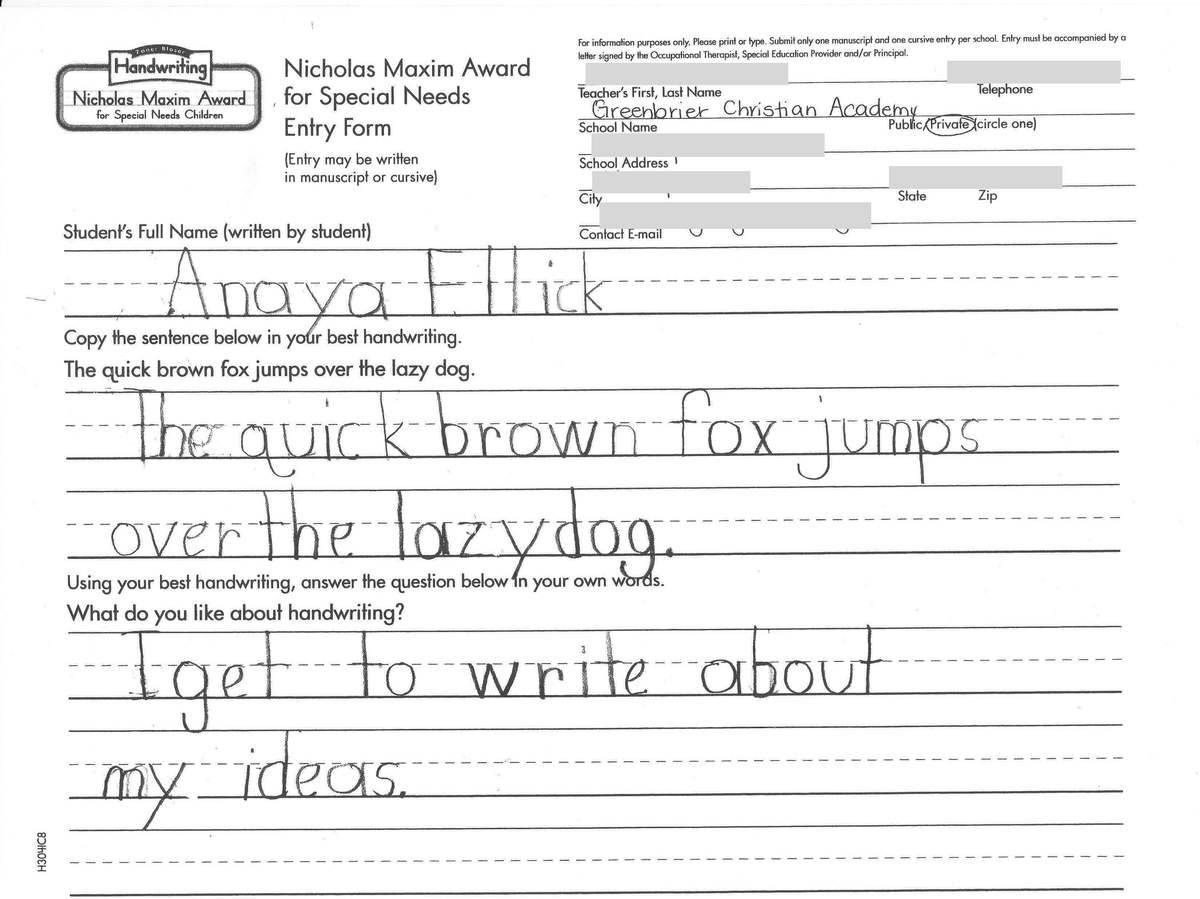 Zaner-Bloser
Handwriting
Nicholas Maxim Award
for Special Needs Children
Nicholas Maxim Award
for Special Needs
Entry Form
(Entry may be written
in manuscript or cursive)
For information purposes only, Please print or type. Submit only one manuscript and one cursive entry per school. Entry must be accompanied by a
letter signed by the Occupational Therapist, Special Education Provider and/or Principal.
Teacher's First, Last Name Telephone
Greenbrier Christian Academy
School Name Public/Private (circle one)
School Address
City State Zip
Contact E-mail
Student's Full Name (written by student)
Anaya Ellick
Copy the sentence below in your best handwriting.
The quick brown fox jumps over the lazy dog.
The quick brown fox jumps
over the lazy dog.
Using your best handwriting, answer the question below in your own words.
What do you like about handwriting?
I get to write about
my ideas.
H304IC8